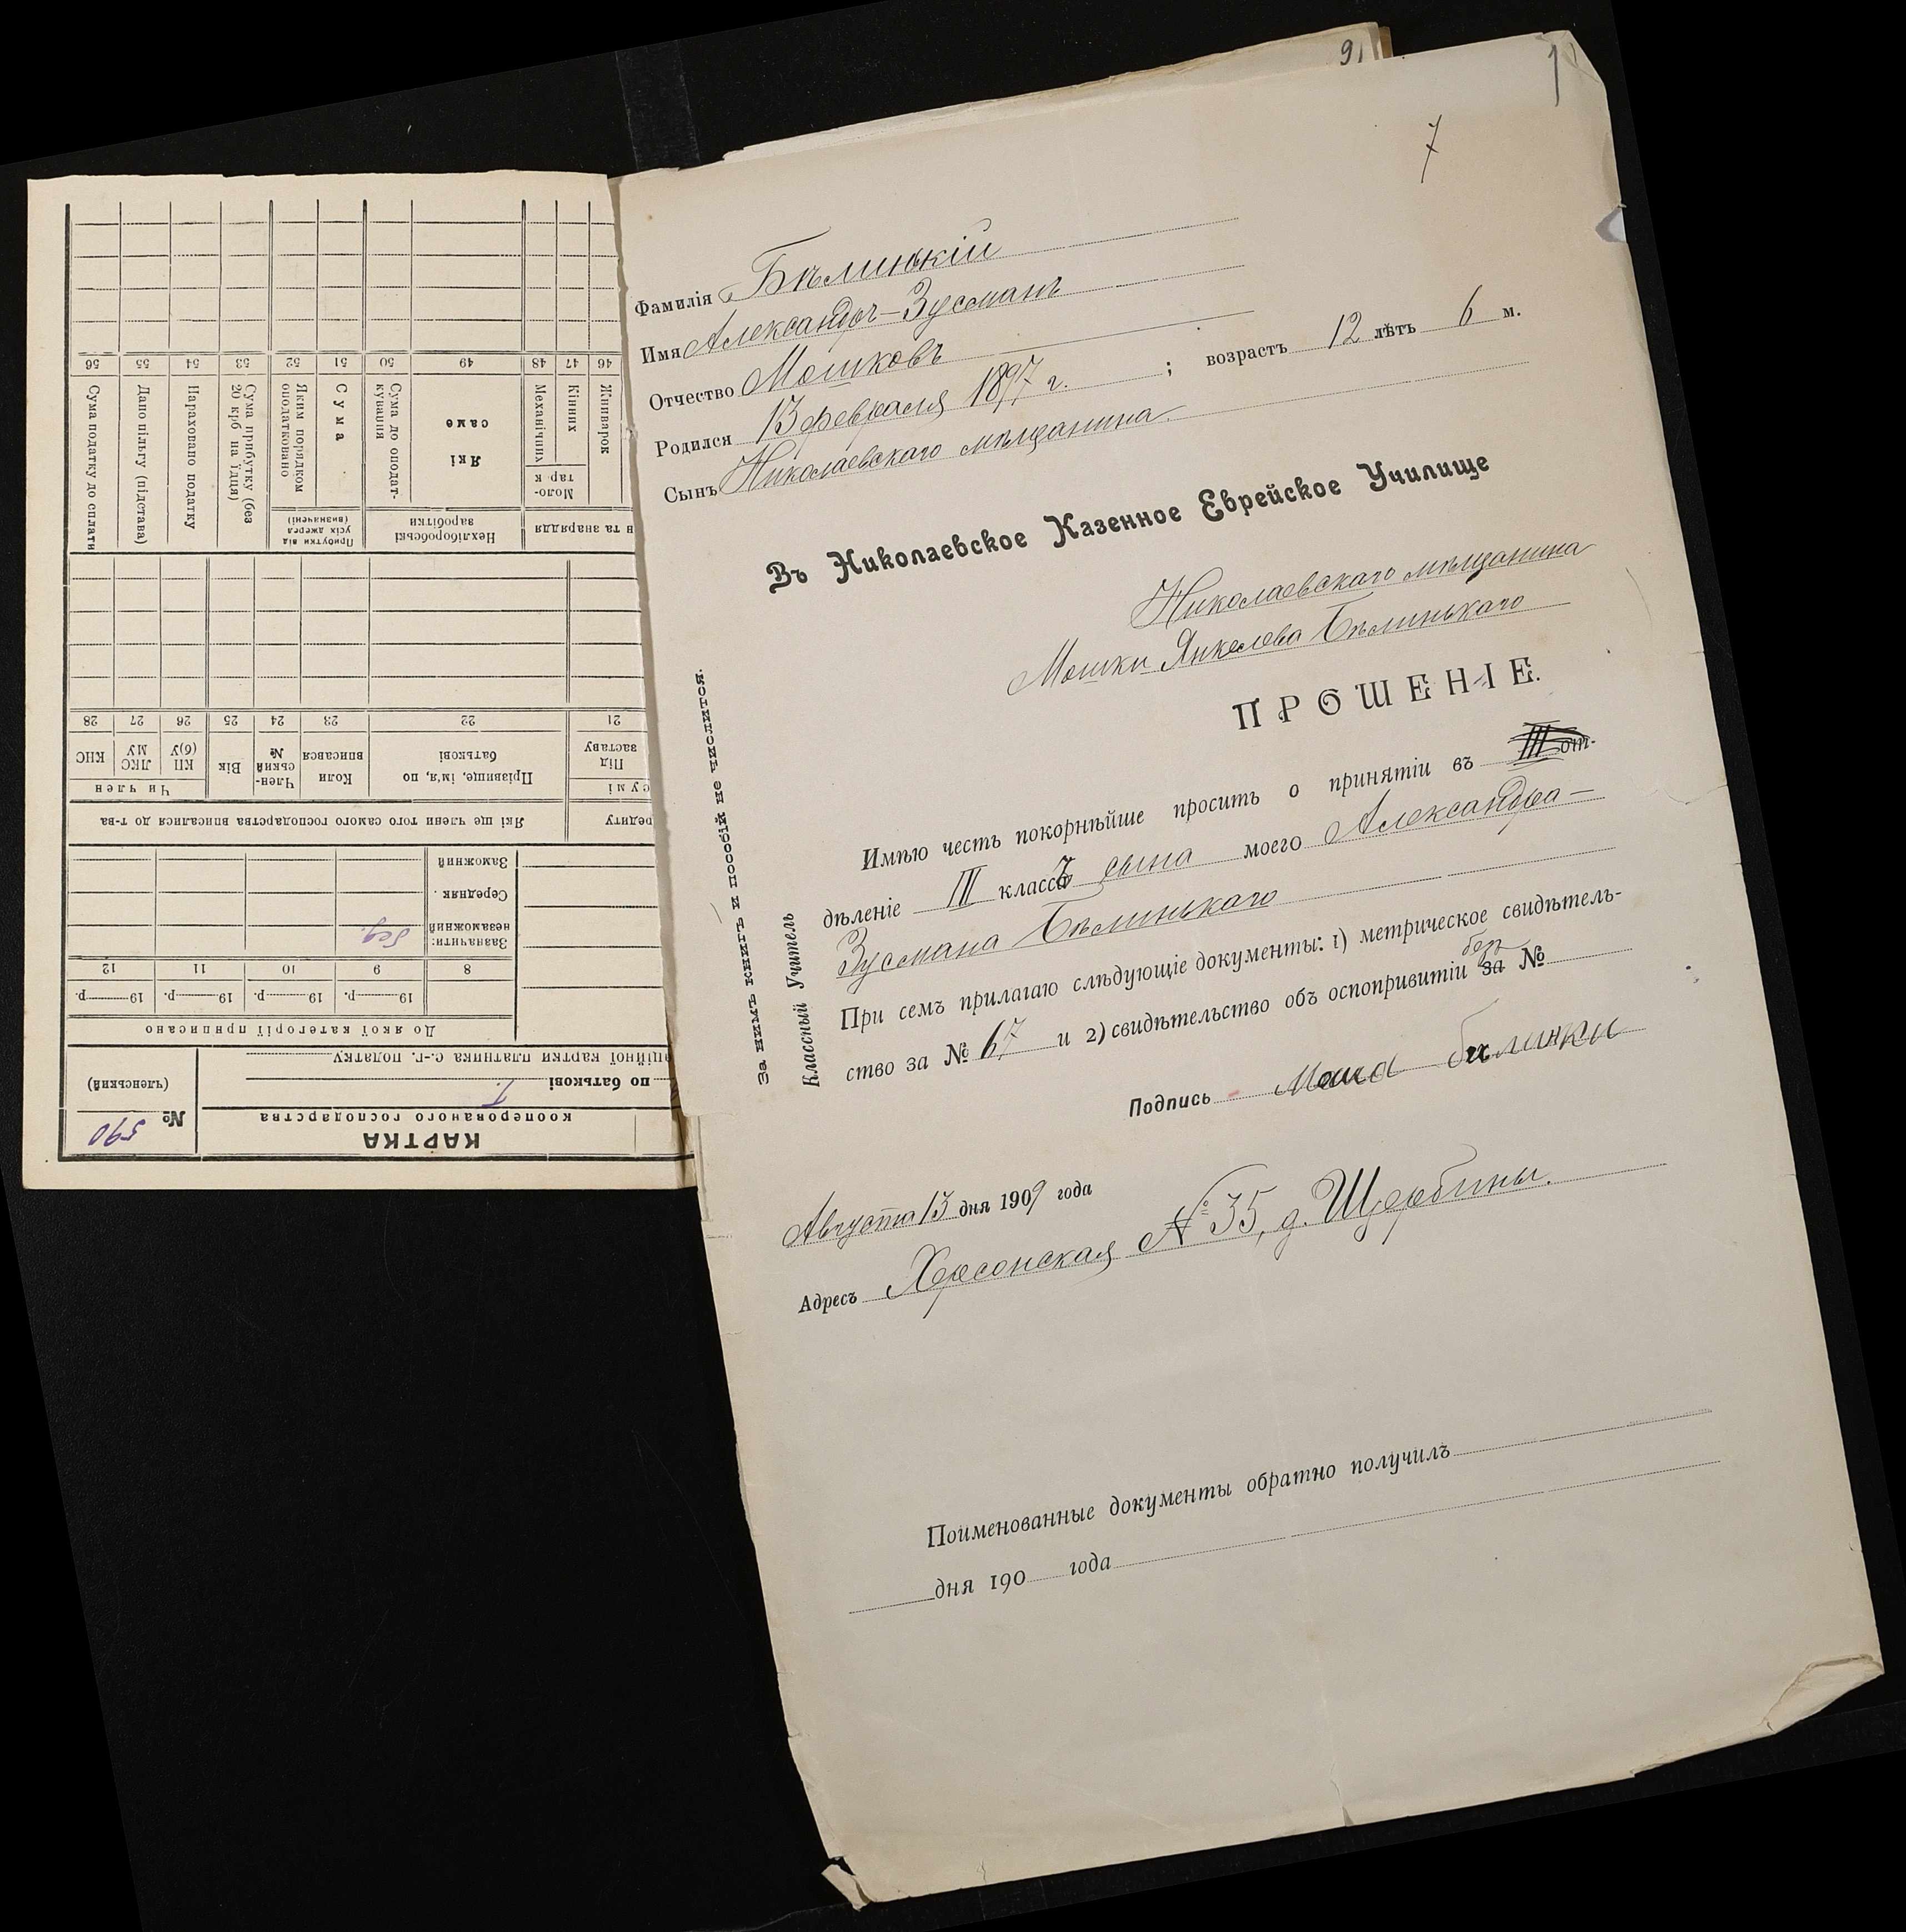 91
1
7
Фамилія Бѣлинькій
Имя Александръ-Зусманъ
Отчество Мошковъ
Родился 13 февраля 1897 г. ; возрастъ 12 лѣтъ 6 м.
Сынъ Николаевскаго мѣщанина.
Въ Николаевское Казенное Еврейское Училище
Николаевскаго мѣщанина
Мошки Янкелева Бѣлинькаго
ПРОШЕНІЕ.
Имѣю честь покорнѣйше просить о принятіи въ III от-
дѣленіе III классъ сына моего Александра-
Зусмана Бѣлинькаго
При семъ прилагаю слѣдующіе документы: 1) метрическое свидѣтель-
без
ство за № 67 и 2) свидѣтельство объ оспопривитіи за №
Подпись
Августа 13 дня 1909 года
Адресъ Херсонская № 35, д. Щербины.
Поименованные документы обратно получилъ
дня 190 года
За нимъ книгъ и пособій не числится.
Классный Учитель
КАРТКА
кооперованого господарства
№ 590
(членський)
по батькові Г.
ційної картки платника с.-г. податку
До якої категорії приписано
19 р. 19 р. 19 р. 19 р.
8 9 10 11 12
Зазначити:
незаможний бед.
Середняк
Заможний
редиту
Які ще члени того самого господарства вписалися до т-ва
сумі
Під
заставу
Прізвище, ім'я, по
батькові
Коли
вписався
Член-
ський
№
Вік
Чи член
КП
(б)У
ЛКС
МУ
КНС
21 22 23 24 25 26 27 28
н та знаряддя
Нехліборобські
заробітки
Прибутки від
усіх джерел
(визначені)
Жниварок
Моло-
тар к
Кінних
Механічних
Які
саме
Сума до оподат-
кування
Сума
Яким порядком
оподатковано
Сума прибутку (без
20 крб на їдця)
Нараховано податку
Дано пільгу (підстава)
Сума податку до сплати
46 47 48 49 50 51 52 53 54 55 56